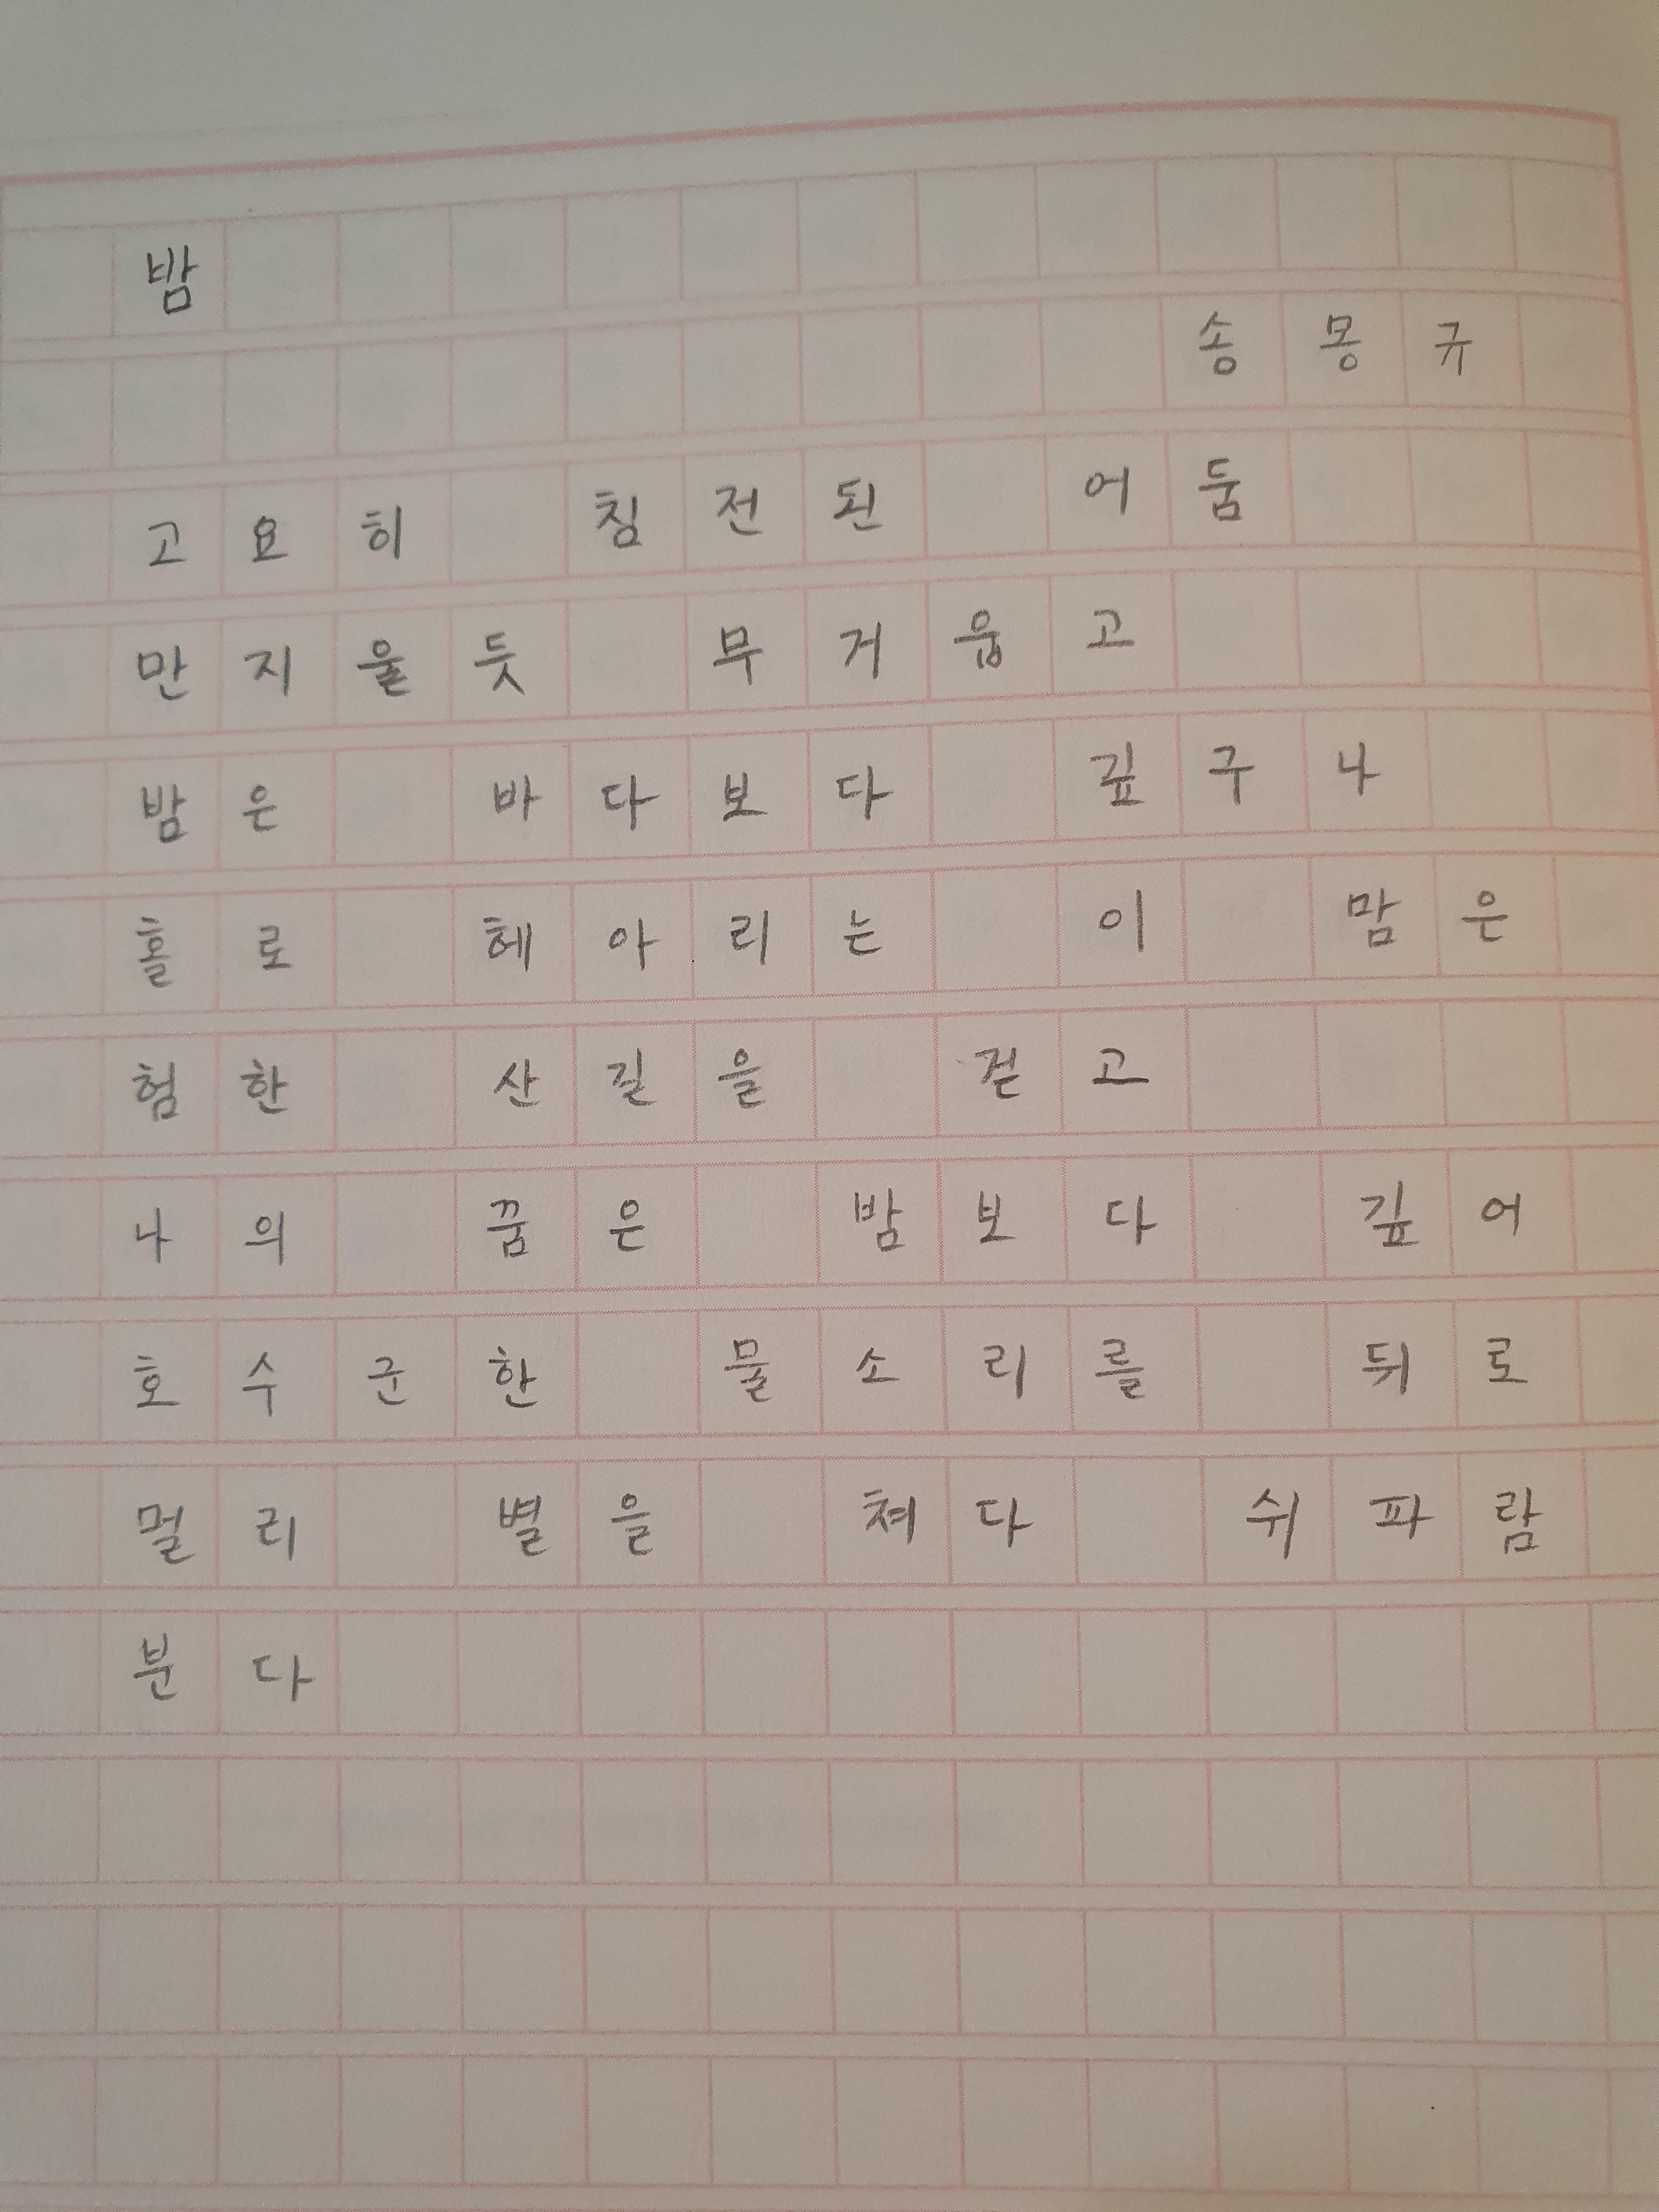 밤
송몽규
고요히 침전된 어둠
만지울듯 무거웁고
밤은 바다보다 깊구나
홀로 헤아리는 이 맘은
험한 산길을 걷고
나의 꿈은 밤보다 깊어
호수군한 물소리를 뒤로
멀리 별을 쳐다 쉬파람
분다